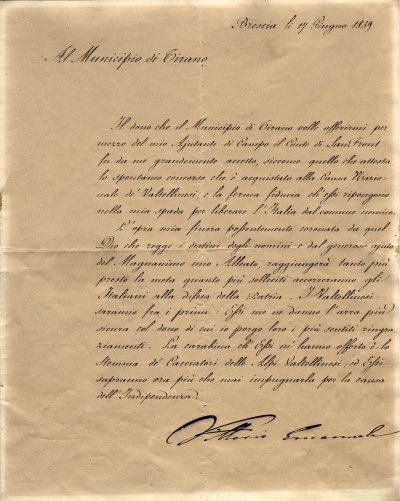 Brescia li 17 Giugno 1859
Al Municipio di Tirano
Il dono che il Municipio di Tirano volle offerirmi per
mezzo del mio Ajutante di Campo il Conte di San Front
fu da me grandemente accetto, siccome quello che attesta
lo spontaneo concorso che è acquistato alla Causa Nazio-
nale de' Valtellinesi, e la ferma fiducia ch'essi ripongono
nella mia spada per liberare l'Italia dal comune nemico.
L'opra mia finora possentemente coronata da quel
Dio che regge i destini degli uomini e dal generoso ajuto
del Magnanimo mio Alleato, raggiungerà tanto più
presto la meta quanto più solleciti accorreranno gli
Italiani alla difesa della Patria. I Valtellinesi
saranno fra i primi: Essi me ne danno l'arra più
sicura col dono di cui io porgo loro i più sentiti ringra-
ziamenti. La carabina ch'Essi mi hanno offerto è lo
Stemma de' Cacciatori delle Alpi Valtellinesi, ed Essi
sapranno ora più che mai impugnarla per la causa
dell'Indipendenza.
Vittorio Emanuele